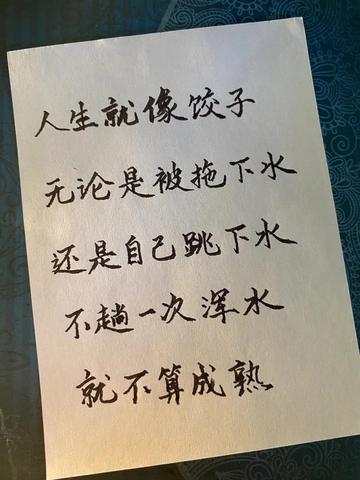 人生就像饺子
无论是被拖下水
还是自己跳下水
不趟一次浑水
就不算成熟